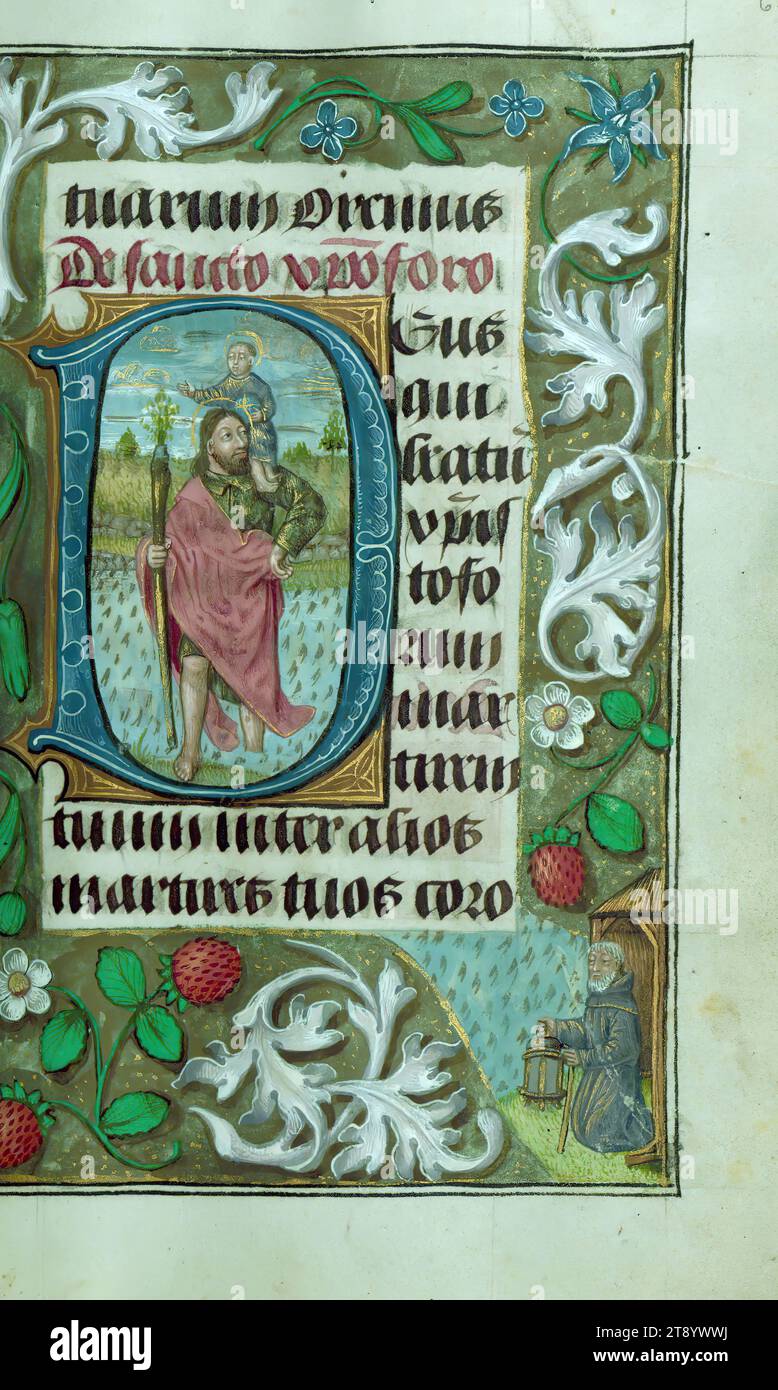 tuarum Oremus
De sancto xp̄oforo
Deus
qui
beatū
xp̄is
tofo
rum
mar
tirem
tuum inter alios
martires tuos coro
alamy
Image ID: 2T8YWWJ
www.alamy.com